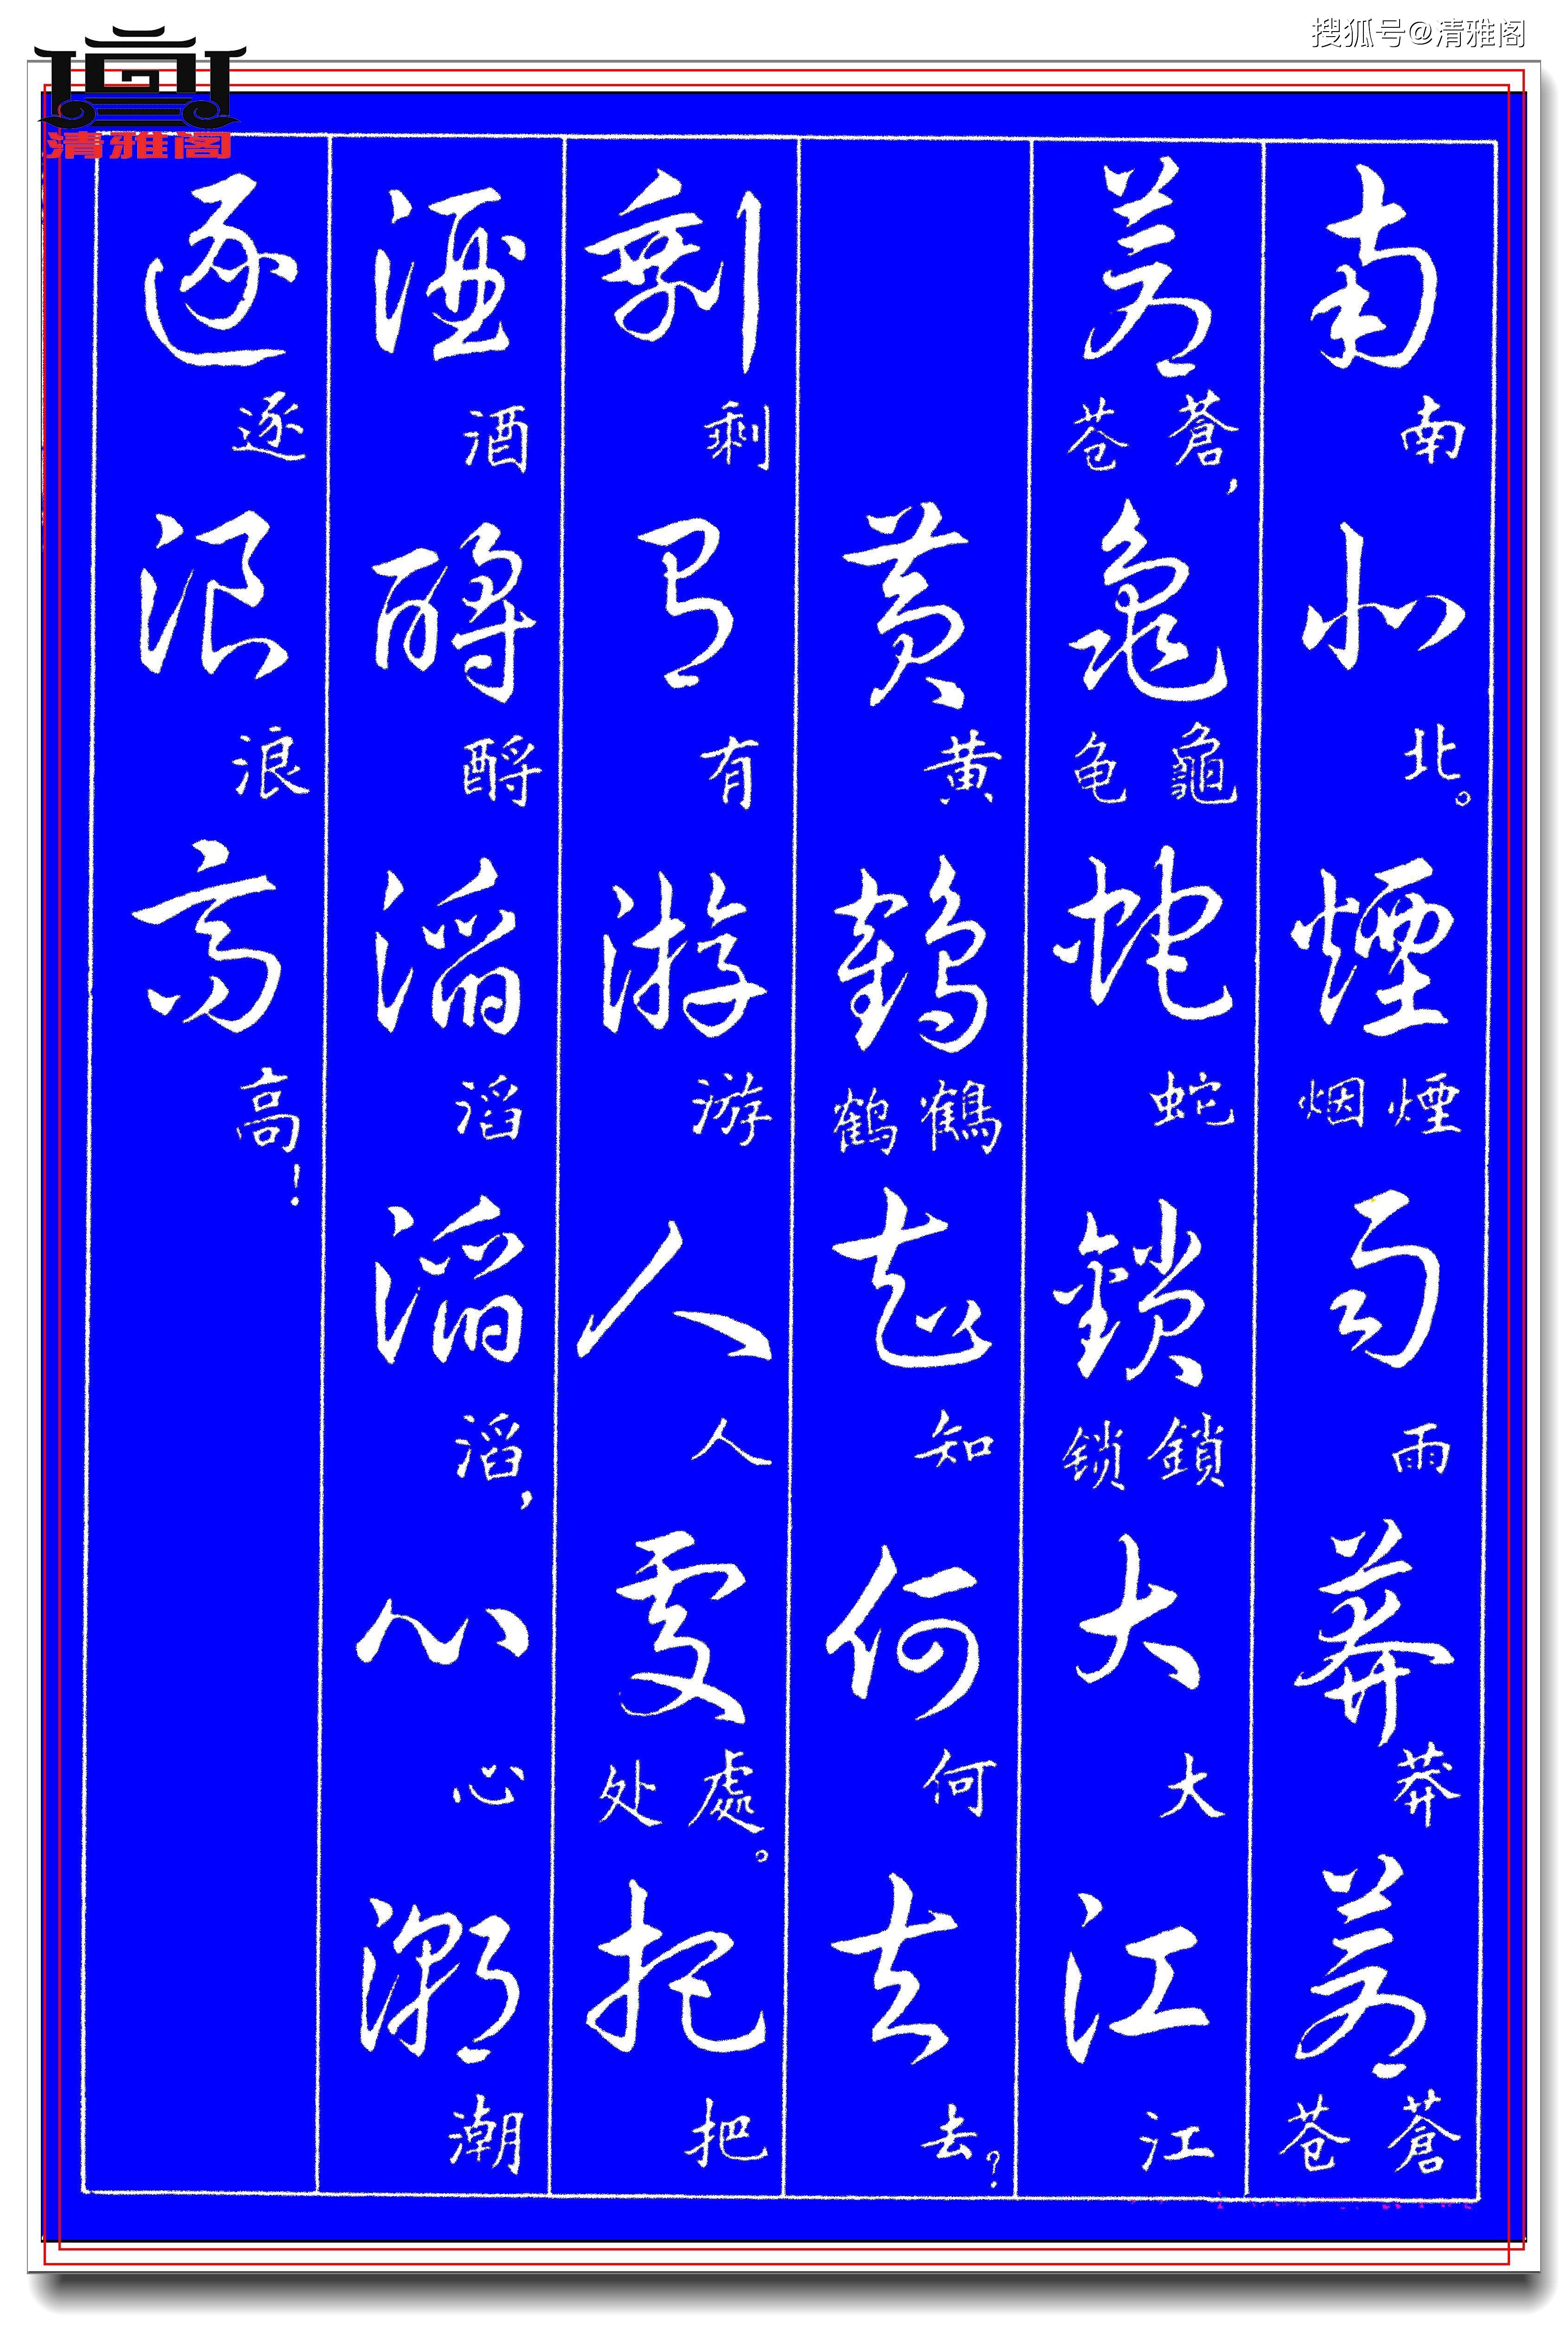 搜狐号@清雅阁
清雅阁
南 南 北 北。 煙 煙 烟 雨 雨 莽 莽 蒼 蒼 苍
蒼 蒼, 苍 龜 龜 龟 蛇 蛇 鎖 鎖 锁 大 大 江 江
黄 黄 鶴 鶴 鹤 知 知 何 何 去 去?
剩 剩 有 有 游 游 人 人 處 處。 处 把 把
酒 酒 酹 酹 滔 滔 滔 滔, 心 心 潮 潮
逐 逐 浪 浪 高 高!